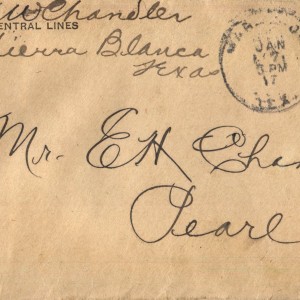 W Chandler
ENTRAL LINES
ierra Blanca
Texas
JAN
7
5 PM
17
TEX
Mr. E H Chan
Pearl